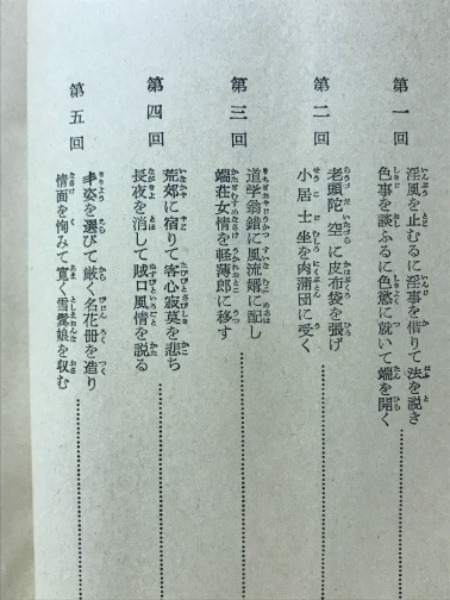 第一回
淫風を止むるに淫事を借りて法を説き
色事を談ふるに色慾に就いて端を開く
第二回
老頭陀空に皮布袋を張げ
小居士坐を肉蒲団に受く
第三回
道学翁錯に風流婿に配し
端荘女情を軽薄郎に移す
第四回
荒郊に宿りて客心寂莫を悲ち
長夜を消して賊口風情を説る
第五回
姿を選びて厳く名花冊を造り
情面を恂みて寛く雪鬂娘を収む